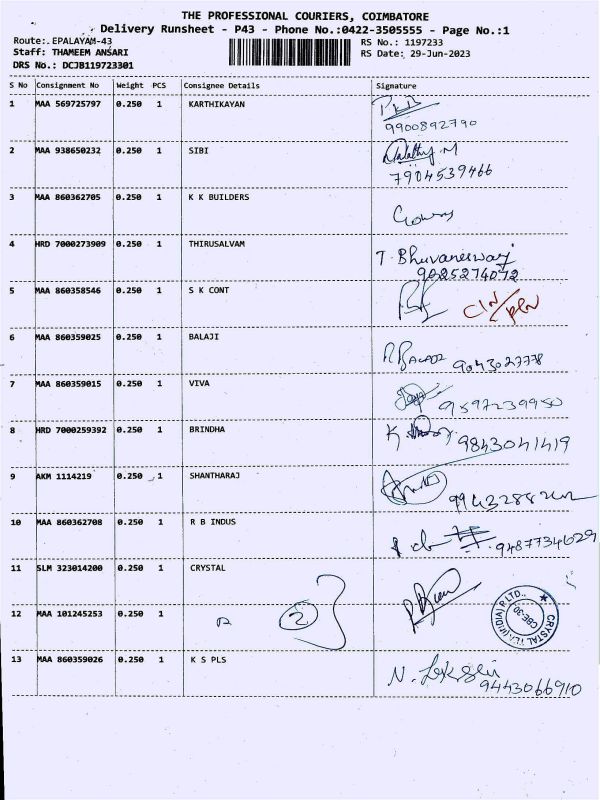 THE PROFESSIONAL COURIERS, COIMBATORE
Delivery Runsheet - P43 - Phone No.:0422-3505555 - Page No.:1
Route:.EPALAYAM-43
RS No.: 1197233
Staff: THAMEEM ANSARI
RS Date: 29-Jun-2023
DRS No.: DCJB119723301
S No Consignment No Weight PCS Consignee Details Signature
1 MAA 569725797 0.250 1 KARTHIKAYAN
9900892790
2 MAA 938650232 0.250 1 SIBI
7904539466
3 MAA 860362705 0.250 1 K K BUILDERS
4 HRD 7000273909 0.250 1 THIRUSALVAM
T. Bhuvaneswari
9025274072
5 MAA 860358546 0.250 1 S K CONT
6 MAA 860359025 0.250 1 BALAJI
9043027778
7 MAA 860359015 0.250 1 VIVA
9597239950
8 HRD 7000259392 0.250 1 BRINDHA
9843041419
9 AKM 1114219 0.250 1 SHANTHARAJ
10 MAA 860362708 0.250 1 R B INDUS
9487734629
11 SLM 323014200 0.250 1 CRYSTAL
12 MAA 101245253 0.250 1
2
CBE-30
13 MAA 860359026 0.250 1 K S PLS
9443066910